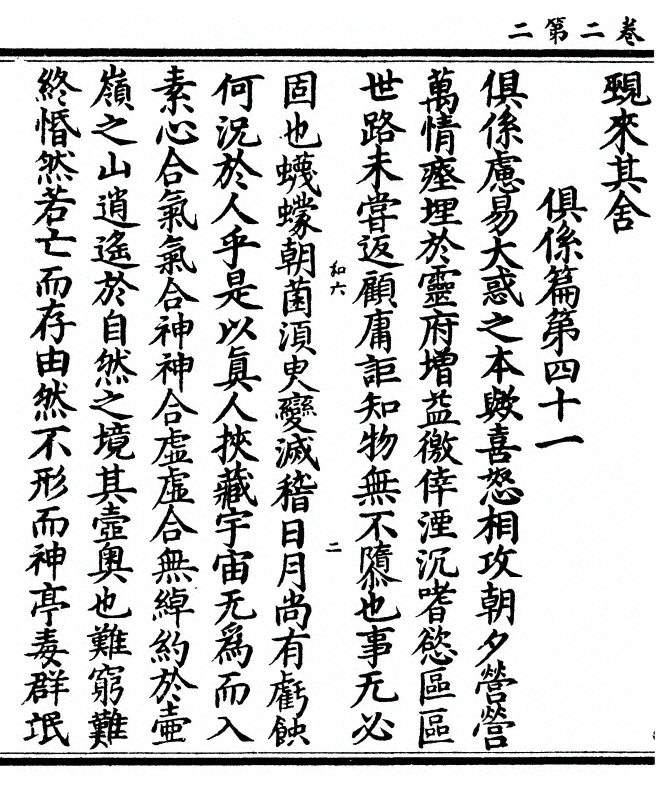 卷二第二
覡來其舍
俱係篇第四十一
俱係慮易大惑之本歟喜怒相攻朝夕營營
萬情瘞埋於靈府增益徼倖湮沉嗜慾區區
世路未嘗返顧庸詎知物無不隳也事无必
和六
二
固也蠛蠓朝菌須臾變滅稽日月尚有虧蝕
何況於人乎是以真人挾藏宇宙无為而入
素心合氣氣合神神合虛虛合無綽約於壺
嶺之山逍遙於自然之境其壺奧也難窮難
終惛然若亡而存由然不形而神亭毒群氓